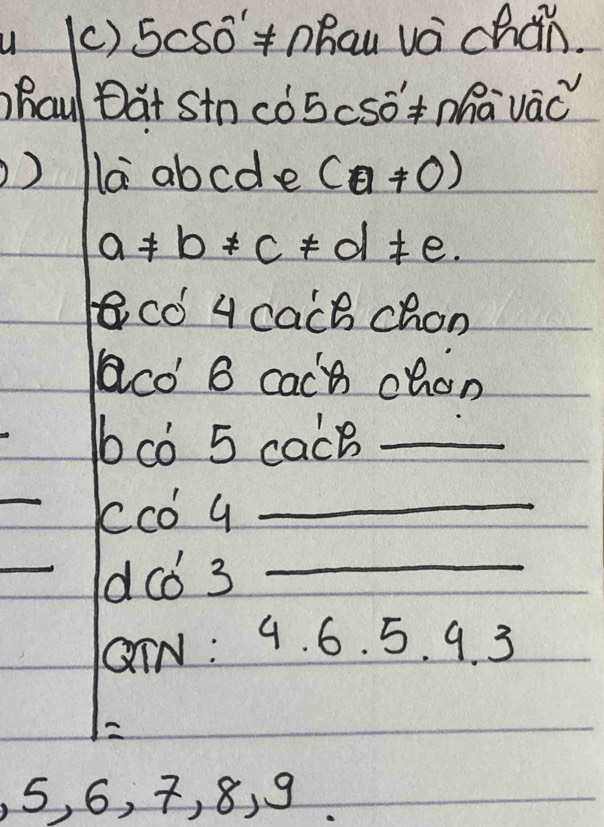 u c) 5csố ≠ nhau và chẵn.
nhau Đặt stn có 5 csố ≠ nhà vàc
) là abcde (a ≠ 0)
a ≠ b ≠ c ≠ d ≠ e.
e có 4 cách chon
a có 6 cách chọn
b có 5 cách —
c có 4 —
d có 3 —
QTN: 4.6.5.4.3
=
, 5, 6, 7, 8, 9.